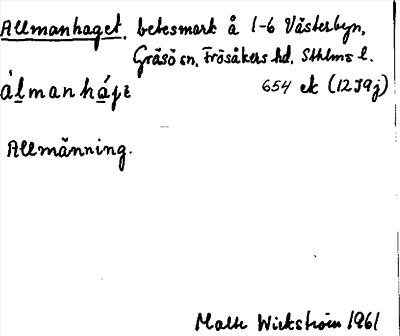 Allmanhaget, betesmark å 1-6 Västerbyn,
Gräsö sn, Frösåkers hd, Sthlms l.
654 ek (12J9j)
Allmänning.
Malte Wickström 1961